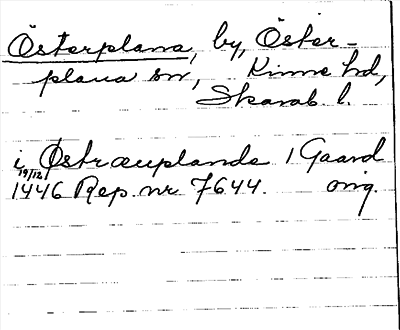 Österplana, by, Öster-
plana sn, Kinne hd,
Skarab. l.
i Østræuplanda 1 Gaard
19/12
1446 Rep. nr 7644. orig.